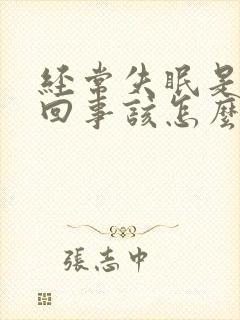 經常失眠是
回事該怎麼
張志中